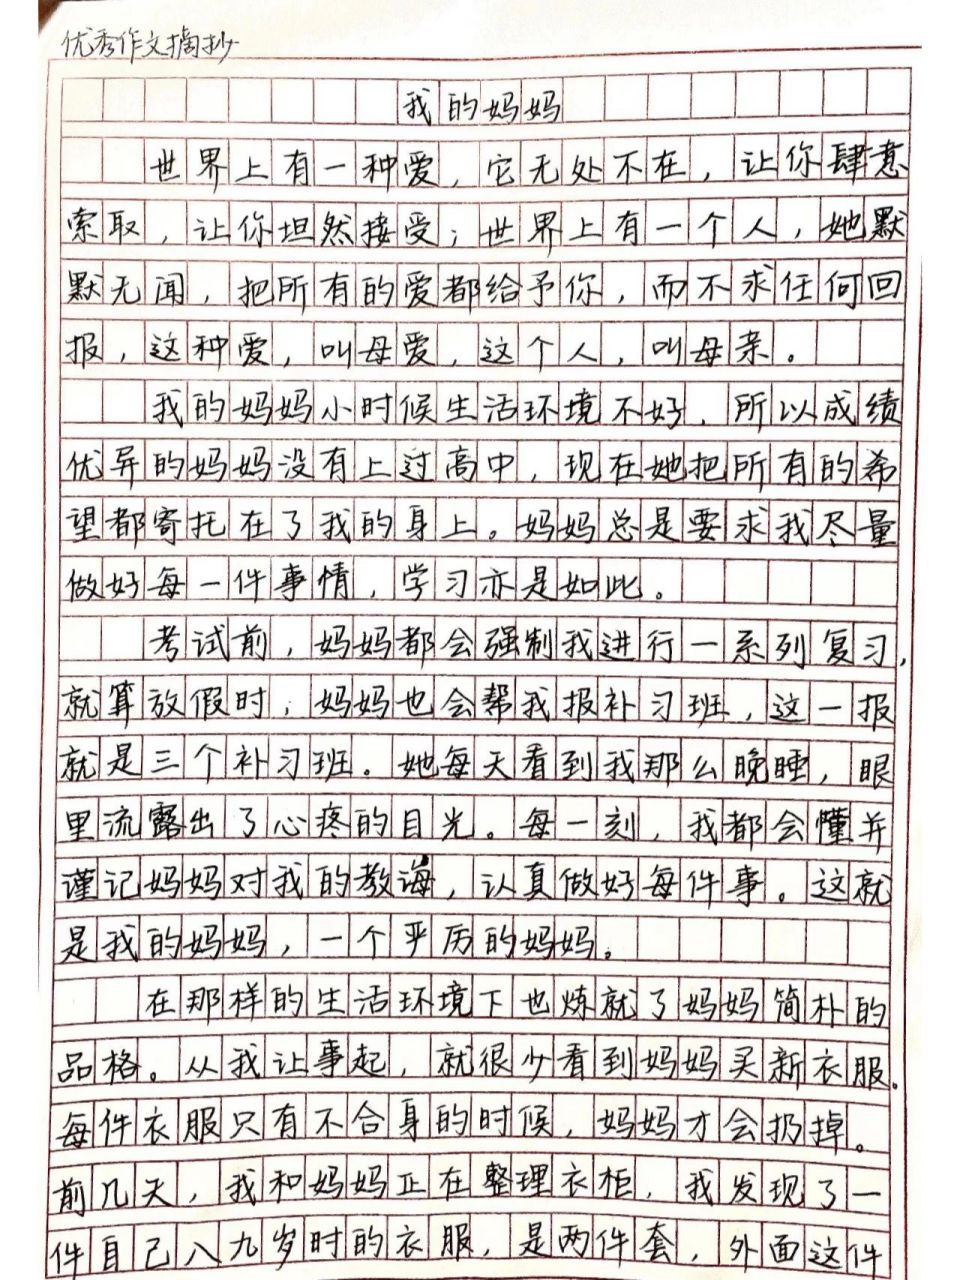 优秀作文摘抄
我的妈妈
世界上有一种爱，它无处不在，让你肆意
索取，让你坦然接受；世界上有一个人，她默
默无闻，把所有的爱都给予你，而不求任何回
报，这种爱，叫母爱，这个人，叫母亲。
我的妈妈小时候生活环境不好，所以成绩
优异的妈妈没有上过高中，现在她把所有的希
望都寄托在了我的身上。妈妈总是要求我尽量
做好每一件事情，学习亦是如此。
考试前，妈妈都会强制我进行一系列复习，
就算放假时，妈妈也会帮我报补习班，这一报
就是三个补习班。她每天看到我那么晚睡，眼
里流露出了心疼的目光。每一刻，我都会懂并
谨记妈妈对我的教诲，认真做好每件事。这就
是我的妈妈，一个严厉的妈妈。
在那样的生活环境下也炼就了妈妈简朴的
品格。从我让事起，就很少看到妈妈买新衣服。
每件衣服只有不合身的时候，妈妈才会扔掉。
前几天，我和妈妈正在整理衣柜，我发现了一
件自己八九岁时的衣服，是两件套，外面这件